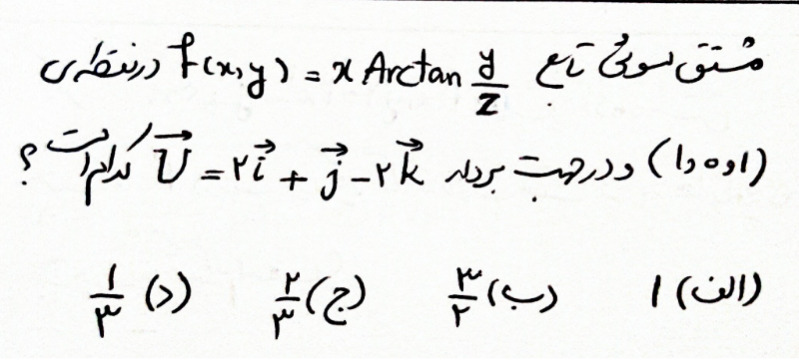 مشتق سوئی تابع f(x,y) = x Arctan y/z در نقطه‌ی
(۱و۰و۱) و در جهت بردار U⃗ = ۲i⃗ + j⃗ - ۲k⃗ کدام است؟
الف) ۱ ب) ۳/۲ ج) ۲/۳ د) ۱/۳